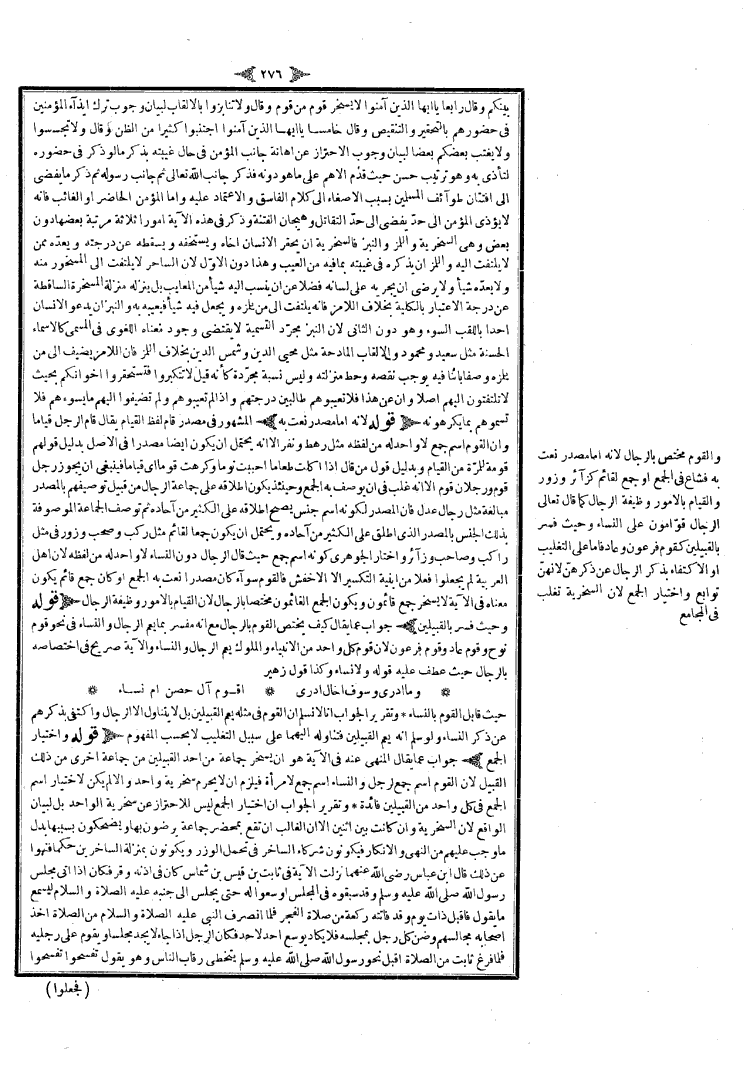 ٢٧٦
بينكم وقال رابعا ياايها الذين آمنوا لا يسخر قوم من قوم وقال ولا تنابزوا بالالقاب لبيان وجوب ترك ايذآء المؤمنين
فى حضورهم بالتحقير والتنقيص وقال خامسا ياايها الذين آمنوا اجتنبوا كثيرا من الظن وقال ولا تجسسوا
ولا يغتب بعضكم بعضا لبيان وجوب الاحتراز عن اهانة جانب المؤمن فى حال غيبته بذكر ما لو ذكر فى حضوره
لتأذى به وهو ترتيب حسن حيث قدّم الاهم على ما هو دونه فذكر جانب الله تعالى ثم جانب رسوله ثم ذكر ما يفضى
الى افتتان طوآئف المسلمين بسبب الاصغاء الى كلام الفاسق والاعتماد عليه واما المؤمن الحاضر او الغائب فانه
لا يؤذى المؤمن الى حدّ يفضى الى حدّ التقاتل وهيجان الفتنة وذكر فى هذه الآية امورا ثلاثة مرتبة بعضها دون
بعض وهى السخرية واللمز والنبز فالسخرية ان يحقر الانسان اخاه ويستخفه ويسقطه عن درجته ويعدّه ممن
لا يلتفت اليه واللمز ان يذكره فى غيبته بما فيه من العيب وهذا دون الاوّل لان الساخر لا يلتفت الى المسخور منه
ولا يعدّه شيأ ولا يرضى ان يجريه على لسانه فضلا عن ان ينسب اليه شيأ من المعايب بل ينزله منزلة المسخرة الساقطة
عن درجة الاعتبار بالكلية بخلاف اللامز فانه يلتفت الى من يلمزه ويجعل فيه شيأ فيعيبه به والنبز ان يدعو الانسان
احدا باللقب السوء وهو دون الثانى لان النبز مجرّد التسمية لا يقتضى وجود معناه اللغوى فى المسمى كالاسماء
الحسنة مثل سعيد ومحمود والالقاب المادحة مثل محيى الدين وشمس الدين بخلاف اللمز فان اللامز يضيف الى من
يلمزه وصفا ثابتا فيه يوجب نقصه وحط منزلته وليس نسبة مجرّدة كأنه قيل لا تتكبروا فتستحقروا اخوانكم بحيث
لا تلتفتون اليهم اصلا وان عن هذا فلا تعيبوهم طالبين درجتهم واذا لم تعيبوهم ولم تضيفوا اليهم ما يسوءهم فلا
تسموهم بما يكرهونه ﴿ قوله لانه اما مصدر نعت به ﴾ المشهور فى مصدر قام لفظ القيام يقال قام الرجل قياما
وان القوم اسم جمع لا واحد له من لفظه مثل رهط ونفر الا انه يحتمل ان يكون ايضا مصدرا فى الاصل بدليل قولهم
قومة للمرّة من القيام وبدليل قول من قال اذا اكلت طعاما احببت نوما وكرهت قوما اى قياما فينبغى ان يجوز رجل
قوم ورجلان قوم الا انه غلب فى ان يوصف به الجمع وحينئذ يكون اطلاقه على جماعة الرجال من قبيل توصيفهم بالمصدر
مبالغة مثل رجال عدل فان المصدر لكونه اسم جنس يصح اطلاقه على الكثير من آحاده ثم توصف الجماعة الموصوفة
بذلك الجنس بالمصدر الذى اطلق على الكثير من آحاده ويحتمل ان يكون جمعا لقائم مثل ركب وصحب وزور فى مثل
راكب وصاحب وزآئر واختار الجوهرى كونه اسم جمع حيث قال الرجال دون النساء لا واحد له من لفظه لان اهل
العربية لم يجعلوا فعلا من ابنية التكسير الا الاخفش فالقوم سوآء كان مصدرا نعت به الجمع او كان جمع قائم يكون
معناه فى الآية لا يسخر جمع قائمون ويكون الجمع القائمون مختصا بالرجال لان القيام بالامور وظيفة الرجال ﴿ قوله
وحيث فسر بالقبيلين ﴾ جواب عما يقال كيف يختص القوم بالرجال مع انه مفسر بما يعم الرجال والنساء فى نحو قوم
نوح وقوم عاد وقوم فرعون لان قوم كل واحد من الانبياء والملوك يعم الرجال والنساء والآية صريح فى اختصاصه
بالرجال حيث عطف عليه قوله ولا نساء وكذا قول زهير
* وما ادرى وسوف اخال ادرى * اقوم آل حصن ام نساء *
حيث قابل القوم بالنساء * وتقرير الجواب انا لا نسلم ان القوم فى مثله يعم القبيلين بل لا يتناول الا الرجال واكتفى بذكرهم
عن ذكر النساء ولو سلم انه يعم القبيلين فتناوله اليهما على سبيل التغليب لا بحسب المفهوم ﴿ قوله واختيار
الجمع ﴾ جواب عما يقال المنهى عنه فى الآية هو ان يسخر جماعة من احد القبيلين من جماعة اخرى من ذلك
القبيل لان القوم اسم جمع لرجل والنساء اسم جمع لامرأة فيلزم ان لا يحرم سخرية واحد والا لم يكن لاختيار اسم
الجمع فى كل واحد من القبيلين فائدة * وتقرير الجواب ان اختيار الجمع ليس للاحتراز عن سخرية الواحد بل لبيان
الواقع لان السخرية وان كانت بين اثنين الا ان الغالب ان تقع بمحضر جماعة يرضون بها ويضحكون بسببها بدل
ما وجب عليهم من النهى والانكار فيكونون شركاء الساخر فى تحمل الوزر ويكونون بمنزلة الساخرين حكما فنهوا
عن ذلك قال ابن عباس رضى الله عنهما نزلت الآية فى ثابت بن قيس بن شماس كان فى اذنه وقر فكان اذا اتى مجلس
رسول الله صلى الله عليه وسلم وقد سبقوه فى المجلس اوسعوا له حتى يجلس الى جنبه عليه الصلاة والسلام ليسمع
ما يقول فاقبل ذات يوم وقد فاتته ركعة من صلاة الفجر فلما انصرف النبى عليه الصلاة والسلام من الصلاة اخذ
اصحابه مجالسهم وضن كل رجل بمجلسه فلا يكاد يوسع احد لاحد فكان الرجل اذا جاء لا يجد مجلسا ويقوم على رجليه
فلما فرغ ثابت من الصلاة اقبل نحو رسول الله صلى الله عليه وسلم يتخطى رقاب الناس وهو يقول تفسحوا تفسحوا
(فجعلوا)
والقوم مختص بالرجال لانه اما مصدر نعت
به فشاع فى الجمع او جمع لقائم كزآئر وزور
والقيام بالامور وظيفة الرجال كما قال تعالى
الرجال قوّامون على النساء وحيث فسر
بالقبيلين كقوم فرعون وعاد فاما على التغليب
او الاكتفاء بذكر الرجال عن ذكرهنّ لانهنّ
توابع واختيار الجمع لان السخرية تغلب
فى المجامع